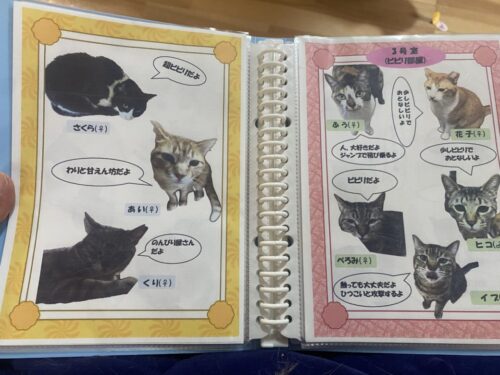 超ビビリだよ
さくら(♀)
わりと甘えん坊だよ
あい(♀)
のんびり屋さん
だよ
くり(♀)
3号室
(ビビリ部屋)
少しビビリで
おとなしいよ
ふう(♀)
花子(♀)
人、大好きだよ
ジャンプで飛び乗るよ
少しビビリで
おとなしいよ
ビビリだよ
ぺろみ(♀)
ヒコ(
触っても大丈夫だよ
ひつこいと攻撃するよ
イブ